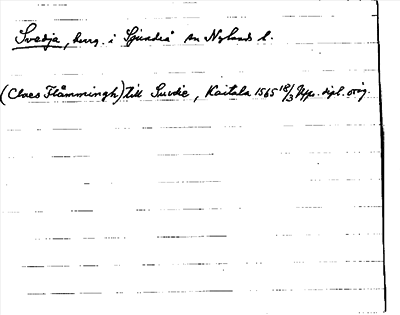 Svedja, herrg. i Sjundeå sn Nylands l.
(Claes Flåmmingh) till Suidie, Kaitala 1565 18/3 Upps. dipl. orig.